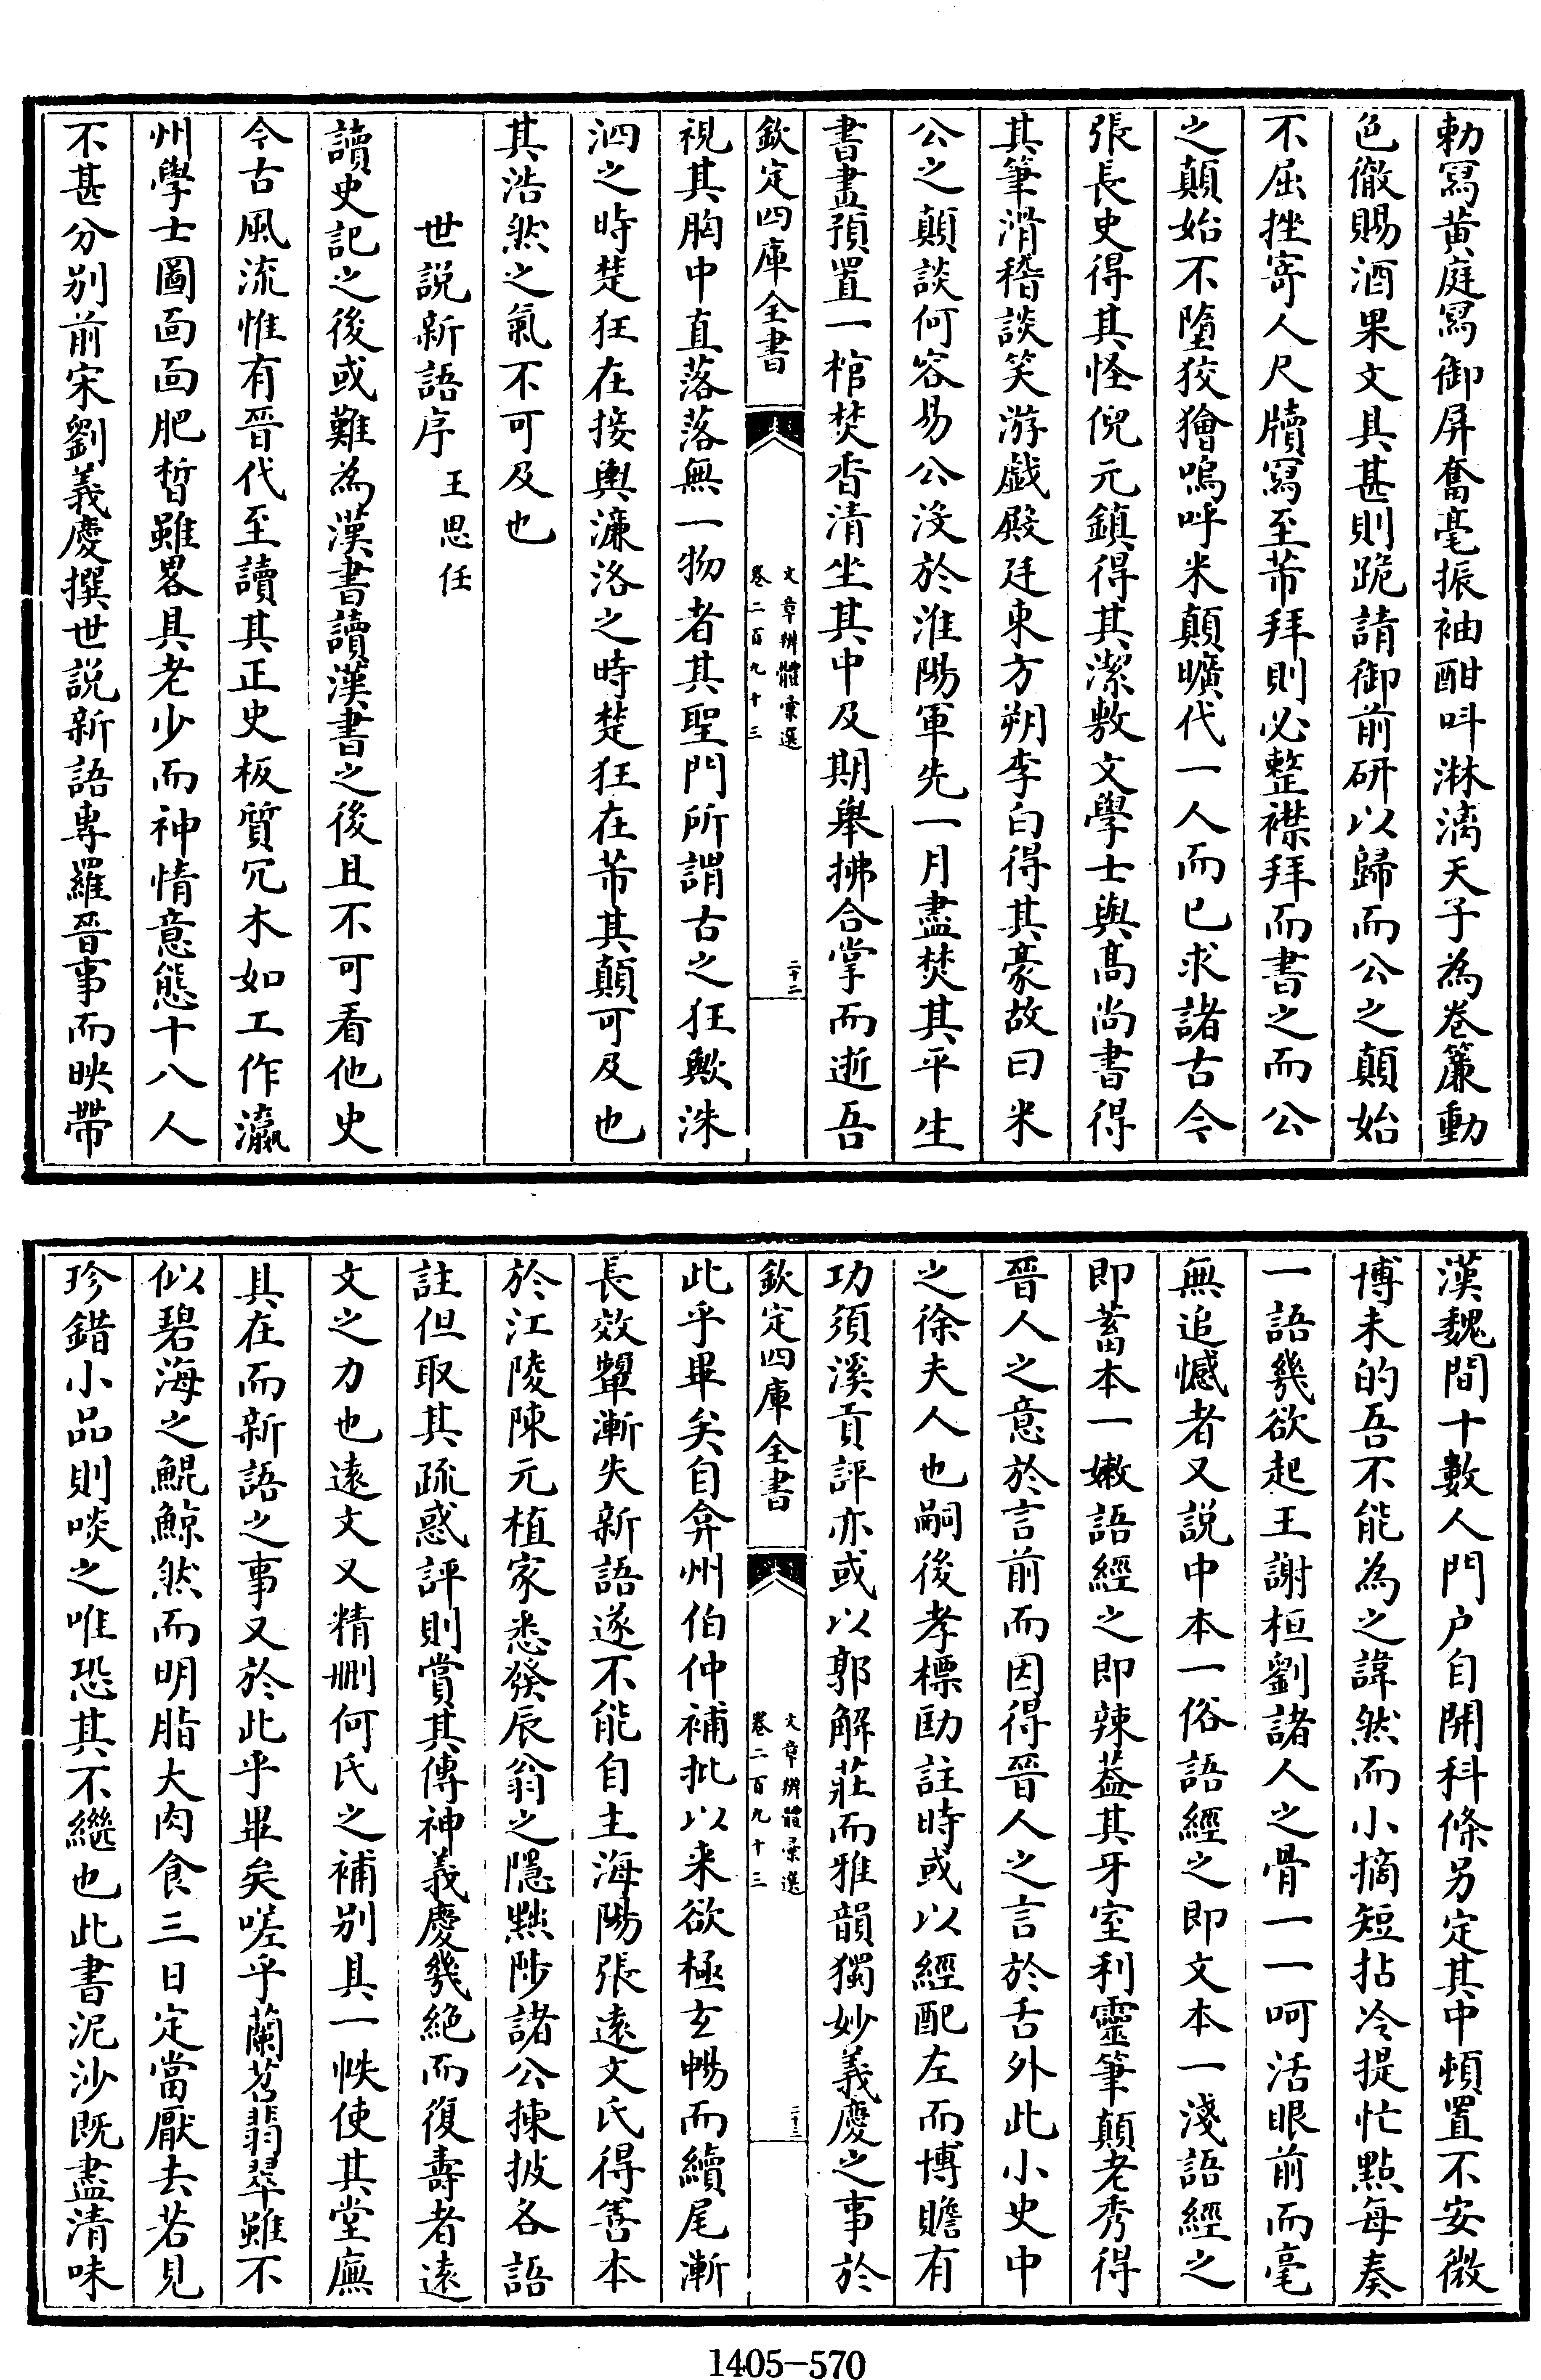 勅冩黄庭冩御屏奮毫振袖酣呌淋漓天子為卷簾動
色徹賜酒果文具甚則跪請御前研以歸而公之顛始
不屈挫寄人尺牘冩至芾拜則必整襟拜而書之而公
之顛始不墮狡獪嗚呼米顛曠代一人而已求諸古今
張長史得其怪倪元鎮得其潔敷文學士與髙尚書得
其筆滑稽談笑游戱殿廷東方朔李白得其豪故曰米
公之顛談何容易公沒於淮陽軍先一月盡焚其平生
書畫預置一棺焚香清坐其中及期舉拂合掌而逝吾
欽定四庫全書
文章辨體彙選
卷二百九十三
二十二
視其胸中直落落無一物者其聖門所謂古之狂歟洙
泗之時楚狂在接輿濂洛之時楚狂在芾其顛可及也
其浩然之氣不可及也
世説新語序 王思任
讀史記之後或難為漢書讀漢書之後且不可看他史
今古風流惟有晉代至讀其正史板質冗木如工作瀛
州學士圖面面肥晳雖畧具老少而神情意態十八人
不甚分别前宋劉義慶撰世説新語專羅晉事而映帶
漢魏間十數人門户自開科條另定其中頓置不安微
博未的吾不能為之諱然而小摘短拈冷提忙點每奏
一語幾欲起王謝桓劉諸人之骨一一呵活眼前而毫
無追憾者又説中本一俗語經之即文本一淺語經之
即蓄本一嫩語經之即辣葢其牙室利靈筆顛老秀得
晉人之意於言前而因得晉人之言於舌外此小史中
之徐夫人也嗣後孝標劻註時或以經配左而博贍有
功須溪貢評亦或以郭解莊而雅韻獨妙義慶之事於
欽定四庫全書
文章辨體彙選
卷二百九十三
二十三
此乎畢矣自弇州伯仲補批以来欲極玄暢而續尾漸
長效顰漸失新語遂不能自主海陽張遠文氏得善本
於江陵陳元植家悉發辰翁之隱黜陟諸公揀披各語
註但取其疏惑評則賞其傳神義慶幾絶而復壽者遠
文之力也遠文又精刪何氏之補别具一帙使其堂廡
具在而新語之事又於此乎畢矣嗟乎蘭苕翡翠雖不
似碧海之鯤鯨然而明脂大肉食三日定當厭去若見
珍錯小品則啖之唯恐其不繼也此書泥沙既盡清味
1405-570